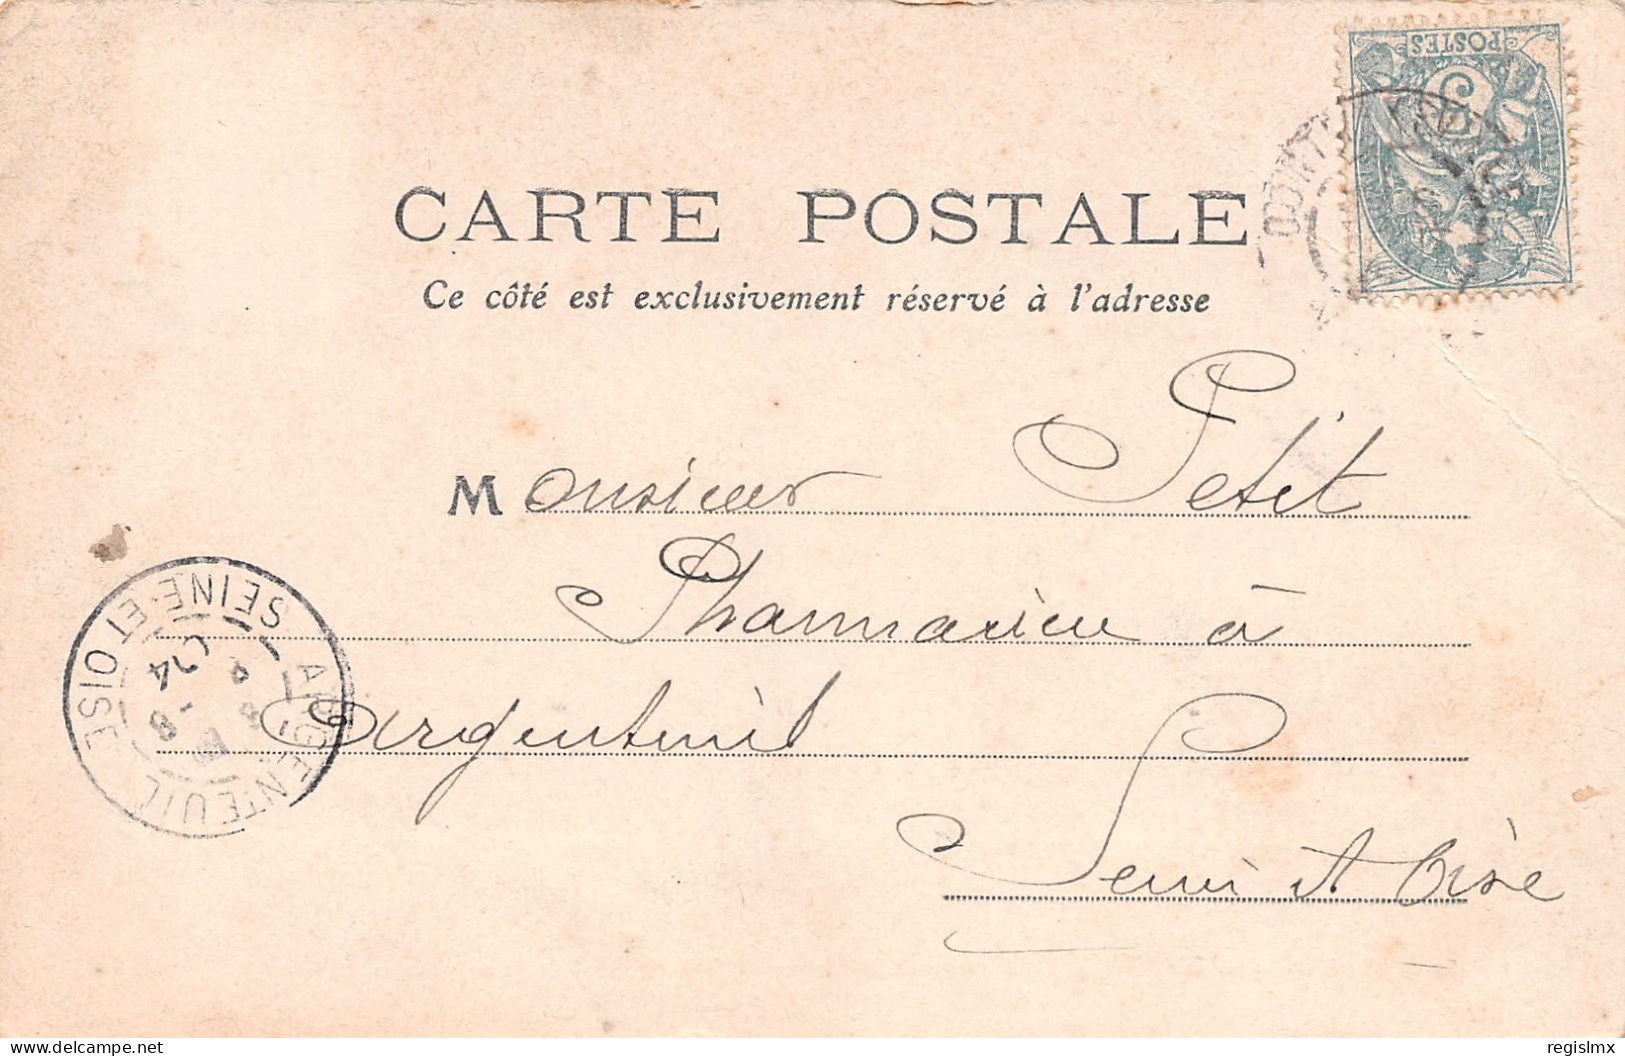 POSTES
5
CARTE POSTALE
Ce côté est exclusivement réservé à l'adresse
Monsieur Petit
Pharmacien à
Argenteuil
Seine et Oise
ARGENTEUIL
SEINE-ET-OISE
8
04
delcampe.net
regislmx